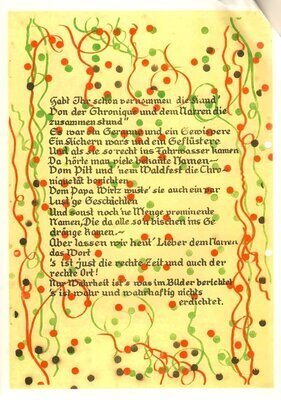 Habt Ihr schon vernommen die Kund"
Von der Chronique und dem Narren die
zusammen stund"
Es war ein Geraune und ein Gewispere
Ein Kichern wars und ein Geflüstere
Und als sie so recht ins Fahrwasser kamen
Da hörte man viele bekannte Namen—
Vom Pitt und 'nem Waldfest die Chro-
niquetät berichten
Vom Papa Wirtz wußte' sie auch ein paar
Lust'ge Geschichten
Und sonst noch 'ne Menge prominente
Namen, Die da alle so'n bischen ins Ge
dränge kamen.—
Aber lassen wir heut' Lieber dem Narren
das Wort
's ist just die rechte Zeit und auch der
rechte Ort!
Nur Wahrheit ist's was im Bilde berichtet
's ist wahr und wahrhaftig nichts
erdichtet.